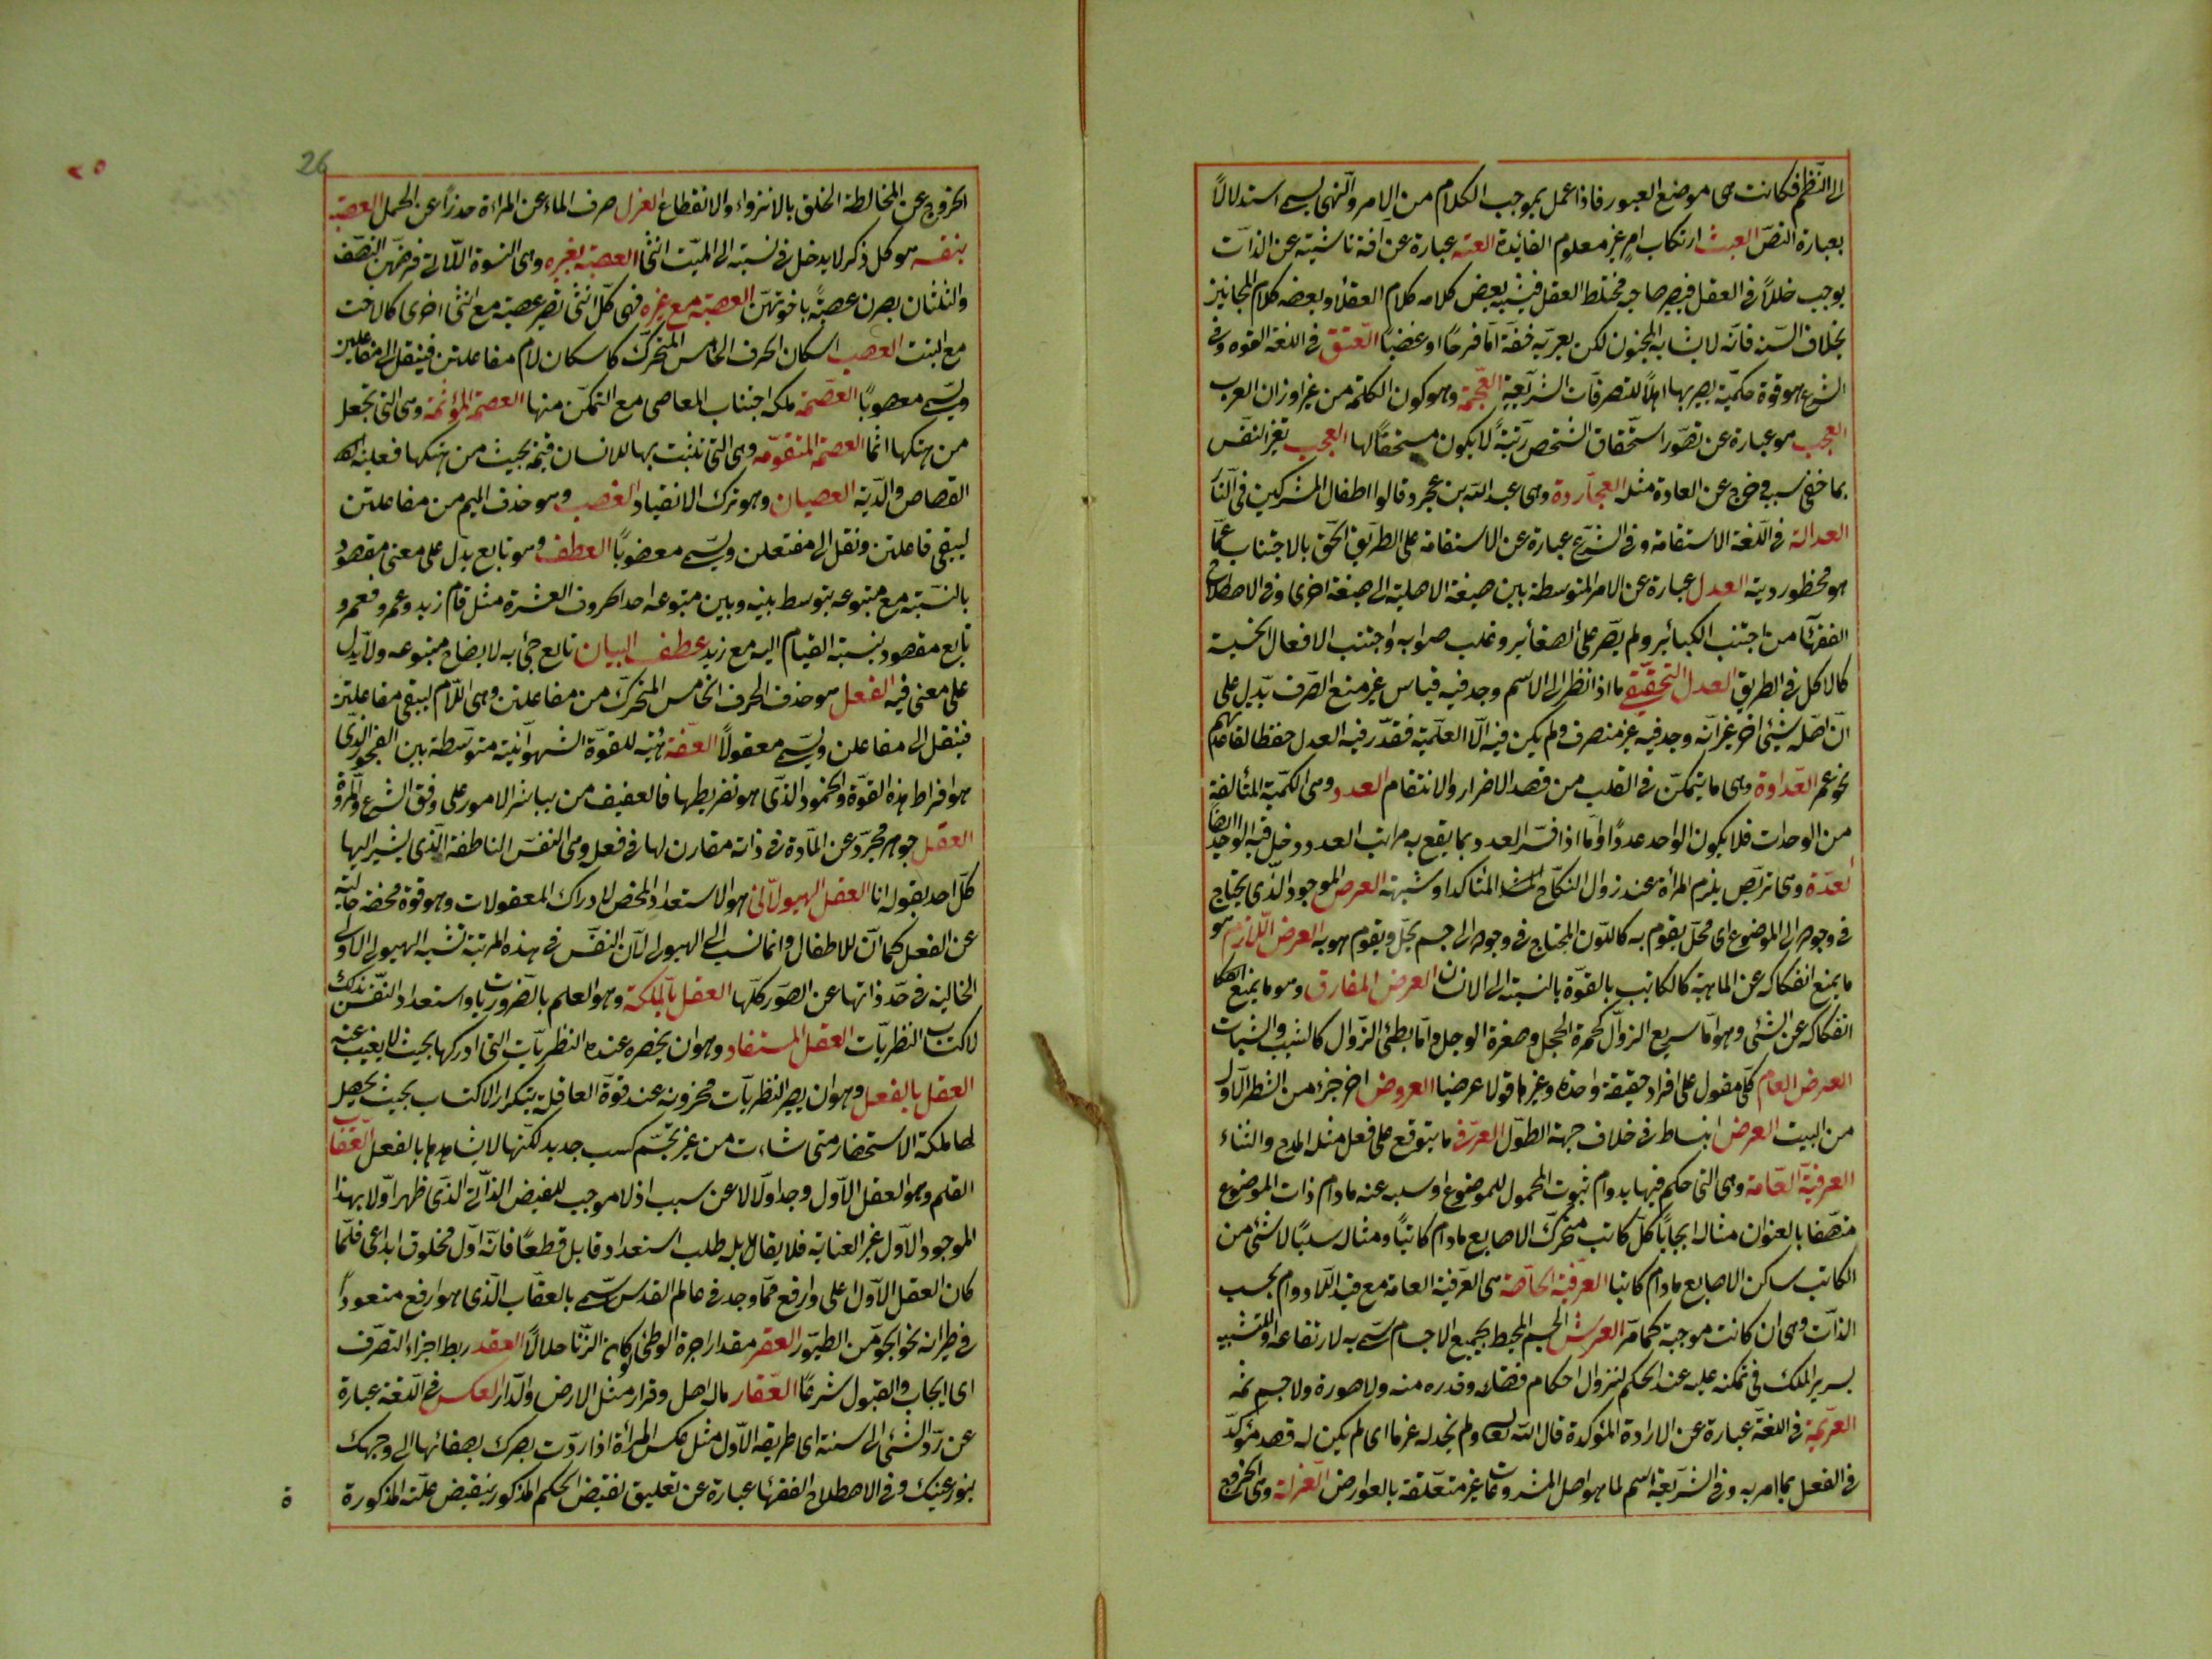 الى النظم فكانت هى موضع العبور فاذا عمل بموجب الكلام من الامر والنهى يسمى استدلالاً
بعبارة النصّ العبث ارتكاب امر غير معلوم الفائدة العته عبارة عن آفة ناشية عن الذات
يوجب خللاً فى العقل فيصير صاحبه مختلط العقل فيشبه بعض كلامه كلام العقلاء وبعضه كلام المجانين
بخلاف السّفه فانّه لا يشابه المجنون لكن يعتريه خفّة امّا فرحًا او غضبًا العتق فى اللغة القوه وفى
الشرع هو قوة حكميّة يصير بها اهلاً للتصرفات الشرعية العجمة وهو كون الكلمة من غير اوزان العرب
العجب هو عبارة عن تصوّر استحقاق الشخص رتبةً لا يكون مستحقًا لها العجب تغير النفس
بما خفى سببه وخرج عن العادة مثله العجاردة وهى عبد الله بن عجرد قالوا اطفال المشركين فى النار
العدالة فى اللّغة الاستقامة وفى الشرع عبارة عن الاستقامة على الطريق الحق بالاجتناب عمّا
هو محظور دينه العدل عبارة عن الامر المتوسطة بين صيغة الاصلية الى صيغة اخرى وفى الاصطلاح
الفقهاء من اجتنب الكبائر ولم يصّر على الصغائر وغلب صوابه واجتنب الافعال الخسيسة
كالاكل فى الطريق العدل التحقيقى ما اذا نظر الى الاسم وجد فيه قياس غير منع الصّرف يدل على
انّ اصله شيئ اخر غير انّه وجد فيه غير منصرف ولم يكن فيه الّا العلّمية فقدّر فيه العدل حفظا لقاعدتهم
نحو عمر العداوة وهى ما يتمكن فى القلب من قصد الاضرار والانتقام العدد وهى الكمّية المتألفة
من الوحدات فلا يكون الواحد عددًا وامّا اذا فسّر العدد بما يقع به مراتب العدد دخل فيه الواحد ايضًا
العدّة وهى تربّص يلزم المرأة عند زوال النكاح المتأكد او شبهته العرض الموجود الذى يحتاج
فى وجوده الى الموضوع اى محلّ يقوم به كاللّون المحتاج فى وجوده الى جسم يحلّ ويقوم هو به العرض اللازم هو
ما يمنع انفكاكه عن الماهية كالكاتب بالقوّة بالنسبة الى الانسان العرض المفارق وهو ما يمنع
انفكاكه عن الشئ وهو امّا سريع الزوال كحمرة الخجل وصفرة الوجل وامّا بطئ الزوال كالشيب والشباب
العرض العام كلّى مقول على افراد حقيقة واحدة وغيرها قولا عرضيا العروض اخر جزء من الشطر الاول
من البيت العرض انبساط فى خلاف جهة الطول العرف ما يتوقع على فعل مثله المدح والثناء
العرفية العامة وهى التى حكم فيها بدوام ثبوت المحمول للموضوع او سلبه عنه مادام ذات الموضوع
متصفا بالعنوان مثاله ايجاباً كلّ كاتب متحرّك الاصابع مادام كاتباً ومثاله سلبًا لا شئ من
الكاتب ساكن الاصابع مادام كاتبا العرفية الخاصة هى العرفية العامة مع قيد اللادوام بحسب
الذات وهى ان كانت موجبة كما مرّ العرش الجسم المحيط بجميع الاجسام سمّى به لارتفاعه او للتشبيه
بسرير الملك فى تمكنه عليه عند الحكم لنزوال احكام قضائه وقدره منه ولا صورة ولا جسم ثمه
العزيمة فى اللغة عبارة عن الارادة المؤكدة قال الله ولم نجد له عزما اى لم يكن له قصد مؤكّد
فى الفعل بما امر به وفى الشريعة اسم لما هو اصل المشروعات غير متعلّقة بالعوارض العزلة وهى الخروج
26
٢٥
الخروج عن المخالطة الخلق بالانزواء والانقطاع العزل صرف الماء عن المرأة حذراً عن الحمل العصبة
بنفسه هو كل ذكر لا يدخل فى نسبته الى الميّت انثى العصبة بغيره وهى النسوة اللّاتى فرضهن النصف
والثلثان يصرن عصبةً باخوتهنّ العصبة مع غيره فهى كلّ انثى تصير عصبة مع انثى اخرى كالاخت
مع البنت العصب اسكان الحرف الخامس المتحرّك كاسكان لام مفاعلتن فينقل الى مفاعيلن
ويسّمى معصوبًا العصمة ملكة اجتناب المعاصى مع التمكّن منها العصمة المؤثمة وهى التى تجعل
من هتكها اثما العصمة المتقوّمة وهى التى تثبت بها للانسان قيمة بحيث من هتكها فعليه
القصاص والدّية العصيان وهو ترك الانقياد العضب وهو حذف الميم من مفاعلتن
ليبقى فاعلتن ونقل الى مفتعلن ويسّمى معضوبًا العطف وهو تابع يدل على معنى مقصود
بالنسبة مع متبوعه يتوسط بينه وبين متبوعه احد الحروف العشرة مثل قام زيد وعمرو فعمرو
تابع مقصود بنسبة القيام اليه مع زيد عطف البيان تابع جئ به لايضاح متبوعه ولا يدل
على معنى فيه العقل هو حذف الحرف الخامس المتحرّك من مفاعلتن وهى اللّام ليبقى مفاعتن
فينقل الى مفاعلن ويسّمى معقولاً العفّة هيئة للقوّة الشهوانية متوسّطة بين الفجور الذى
هو افراط هذه القوّة والخمود الذى هو تفريطها فالعفيف من يباشر الامور على وفق الشرع والمروّة
العقل جوهر مجرّد عن المادّة فى ذاته مقارن لها فى فعله وهى النفس الناطقة الذى يشير اليها
كلّ احد بقوله انا العقل الهيولانى هو الاستعداد المحض لادراك المعقولات وهو قوة محضة خالية
عن الفعل كما ان للاطفال وانما نسب الى الهيولى لان النفس فى هذه المرتبة تشبه الهيولى الاولى
الخالية فى حدّ ذاتها عن الصور كلّها العقل بالملكة وهو العلم بالضروريات واستعداد النفس بذلك
لاكتساب النظريّات العقل المستفاد وهو ان يحضره عنده النظريات التى ادركها بحيث لا يغيب عنه
العقل بالفعل وهو ان يصير النظريات مخزونة عند قوّة العاقلة بتكرار الاكتساب بحيث يحصل
لها ملكة الاستحضار متى شاءت من غير تجشّم كسب جديد لكنها لا يشاهدها بالفعل العقاب
القلم وهو العقل الاول وجد اولا لا عن سبب اذ لا موجب للفيض الذاتى الذى ظهر اولا بهذا
الموجود الاول غير العناية فلا يقابله طلب استعداد قابل قطعًا فانه اول مخلوق ابداعى فلمّا
كان العقل الاول اعلى وارفع ممّا وجد فى عالم القدس سمّى بالعقاب الذى هو ارفع صعوداً
فى طيرانه نحو الجو من الطيور العقر مقدار اجرة الوطئ لو كان الزنا حلالاً العقد ربط اجزاء التصرف
اى ايجاب والقبول شرعًا العقار ماله اصل وقرار مثل الارض والدار العكس فى اللغة عبارة
عن ردّ الشئ الى سننه اى طريقه الاول مثل عكس المرأة اذا ردّت بصرك بصفائها الى وجهك
بنور عينك وفى الاصطلاح الفقهاء عبارة عن تعليق نقيض الحكم المذكور بنقيض علّته المذكورة